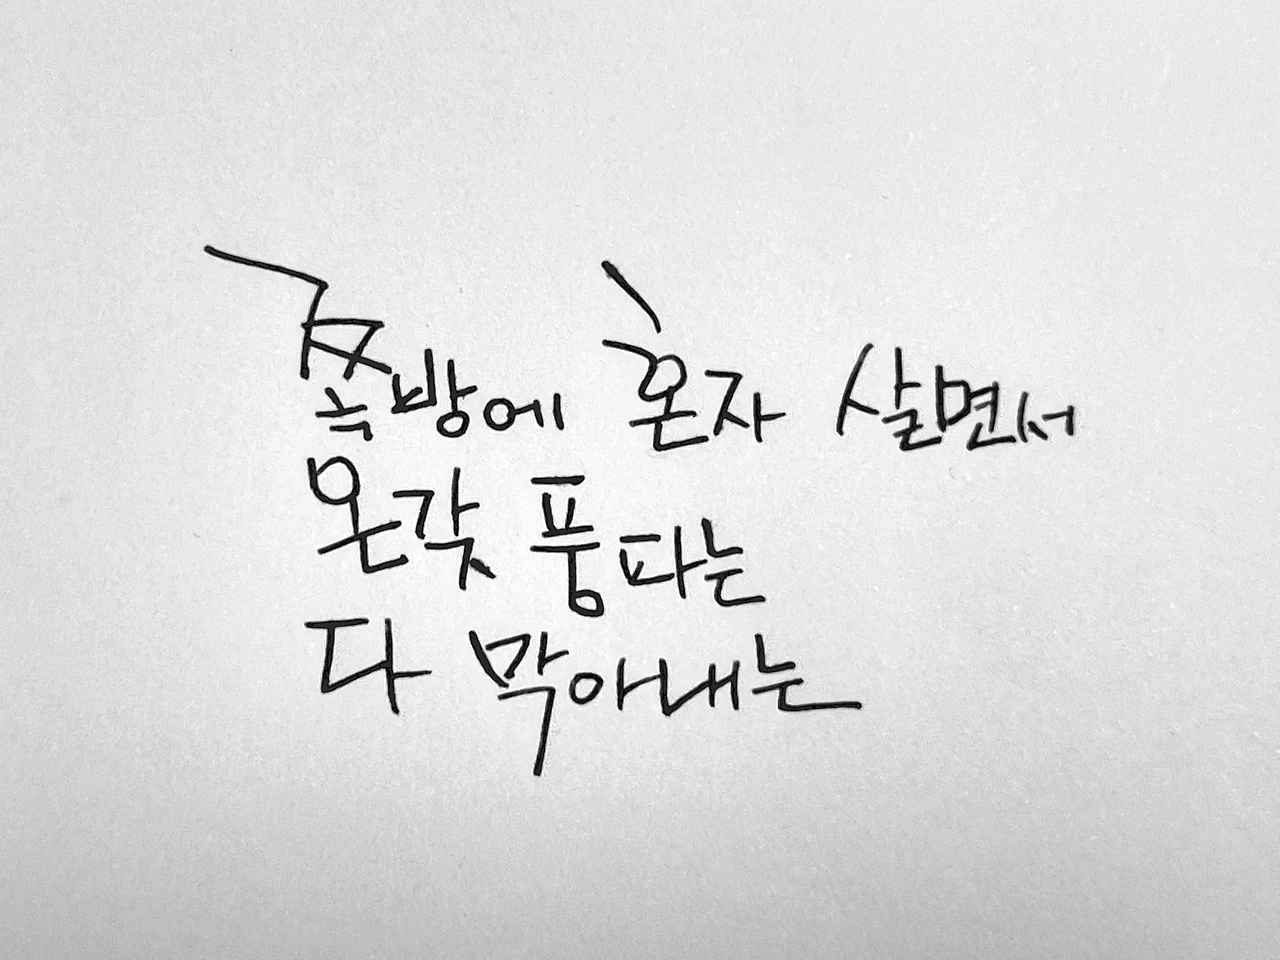 쪽방에 혼자 살면서
온갖 풍파는
다 막아내는